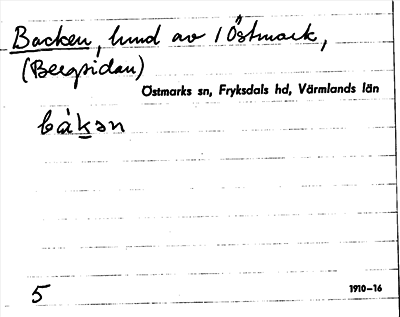 Backen, lund av 1 Östmark,
(Bergsidan)
Östmarks sn, Fryksdals hd, Värmlands län
båkən
5
1910–16